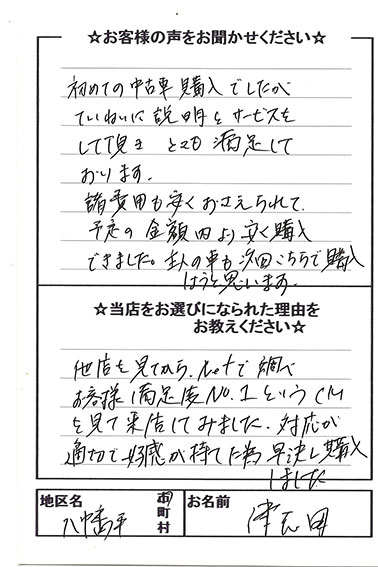 ☆お客様の声をお聞かせください☆
初めての中古車購入でしたが
ていねいに説明とサービスを
して頂き とても満足して
おります。
諸費用も安くおさえられて、
予定の金額内より安く購入
できました。主人の車も次回こちらで購入
しようと思います。
☆当店をお選びになられた理由を
お教えください☆
他店を見てから、Netで調べ
お客様満足度No.1というCM
を見て来店してみました。対応が
適切で好感が持てた為早決し購入
しました
地区名
八幡平
市町村
お名前
津志田